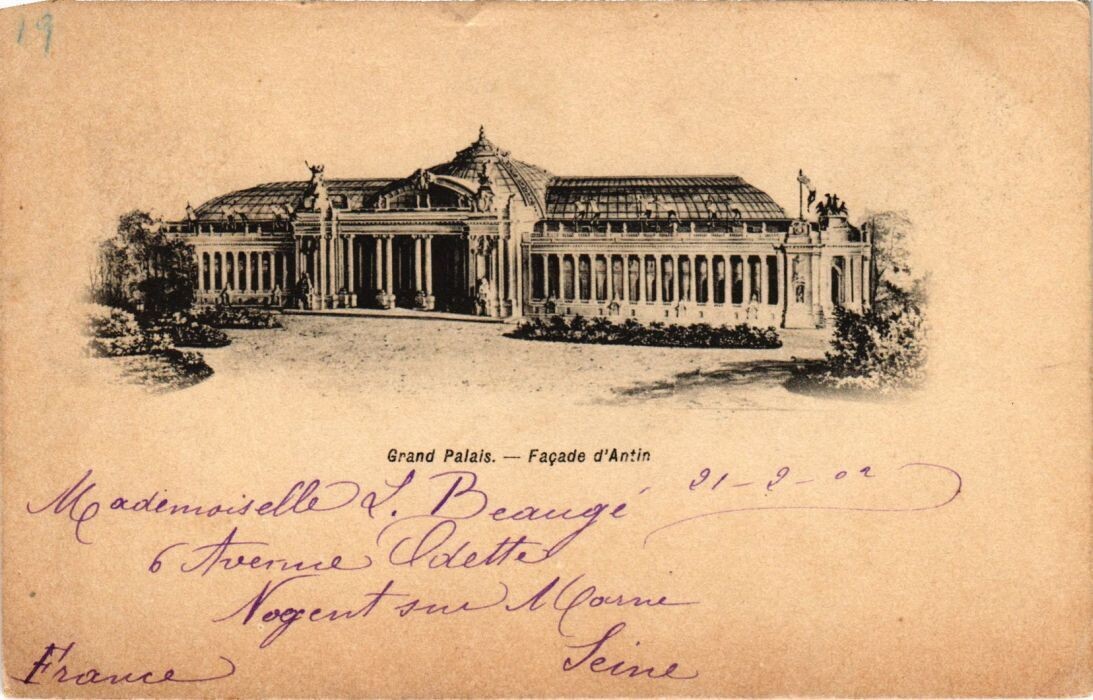 19
Grand Palais. — Façade d'Antin
Mademoiselle L. Beaugé 21-2-02
6 Avenue Odette
Nogent sur Marne
Seine
France